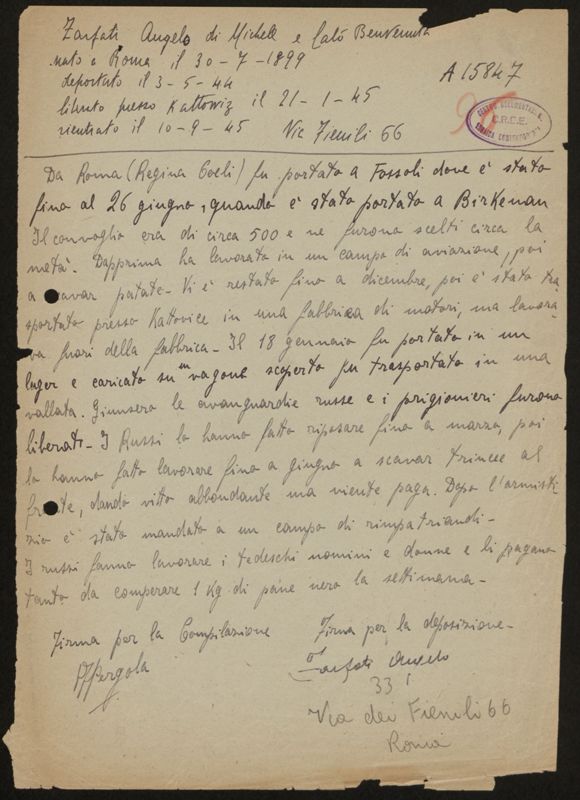 Zarfati Angelo di Michele e Calò Benvenuta
nato a Roma il 30-7-1899
deportato il 3-5-44
liberato presso Kattoviz il 21-1-45
rientrato il 10-9-45 Via Fienili 66
A 15847
C.R.D.E.
Da Roma (Regina Coeli) fu portato a Fossoli dove è stato
fino al 26 giugno, quando è stato portato a Birkenau
Il convoglio era di circa 500 e ne furono scelti circa la
metà. Dapprima ha lavorato in un campo di aviazione, poi
a scavar patate. Vi è restato fino a dicembre, poi è stato tra
sportato presso Kattovice in una fabbrica di motori, ma lavora-
va fuori della fabbrica. Il 18 gennaio fu portato in un
lager e caricato su un vagone scoperto fu trasportato in una
vallata. Giunsero le avanguardie russe e i prigionieri furono
liberati. I Russi lo hanno fatto riposare fino a marzo, poi
lo hanno fatto lavorare fino a giugno a scavar trincee al
fronte, dando vitto abbondante ma niente paga. Dopo l'armisti
zio è stato mandato a un campo di rimpatriandi.
I russi fanno lavorare i tedeschi uomini e donne e li pagano
tanto da comperare 1 Kg. di pane nero la settimana.
Firma per la Compilazione Firma per la deposizione
Pergola Zarfati Angelo
33
Via dei Fienili 66
Roma